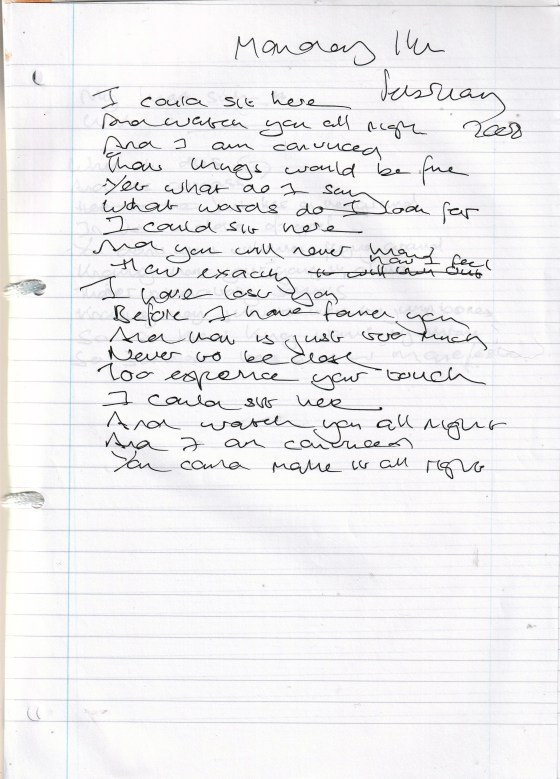 Monday 11th
February
2008
I could sit here
And watch you all night
And I am convinced
That things would be fine
Yet what do I say
What words do I look for
I could sit here
And you will never
how I feel
That exactly
I have lost you
Before I have found you
And that is just too much
Never to be close
Too experience your touch
I could sit here
And watch you all night
And I am convinced
You could make it all right